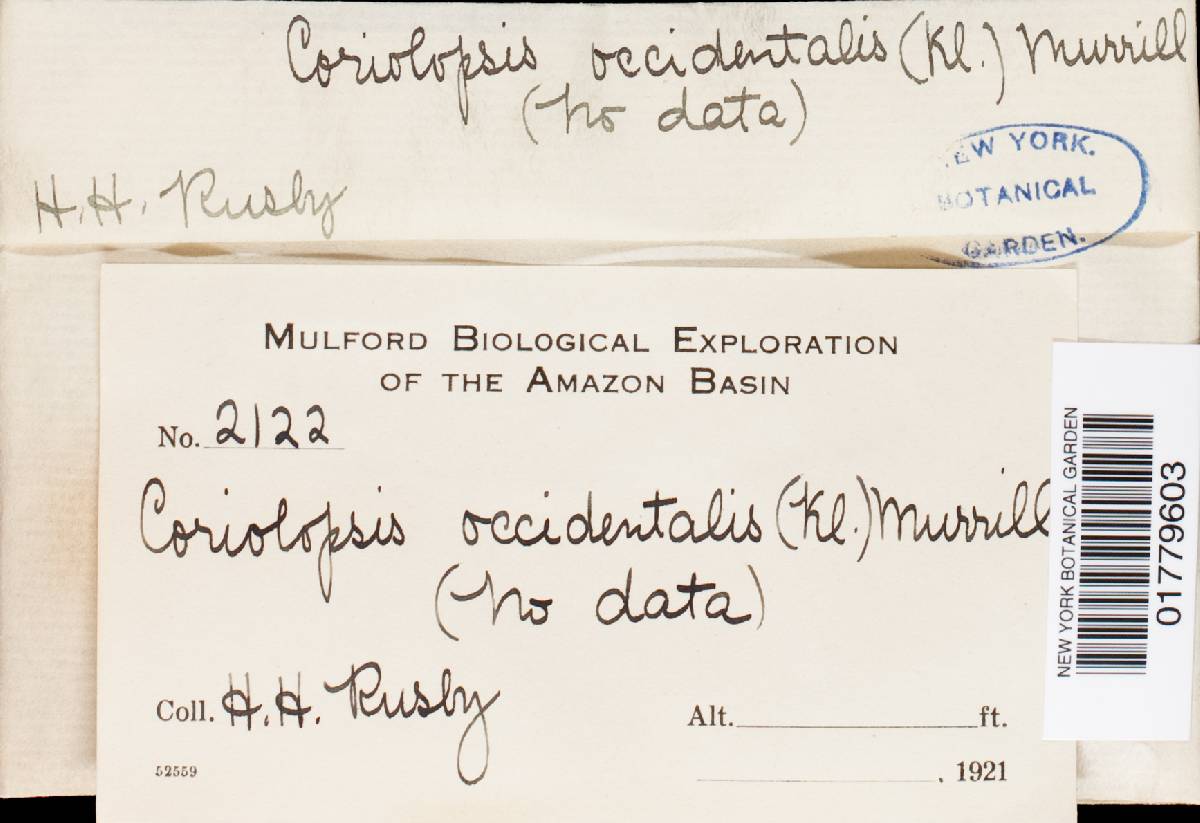 Coriolopsis occidentalis (Kl.) Murrill
(No data)
NEW YORK.
BOTANICAL
GARDEN.
H. H. Rusby
MULFORD BIOLOGICAL EXPLORATION
OF THE AMAZON BASIN
No. 2122
Coriolopsis occidentalis (Kl.) Murrill
(No data)
Coll. H. H. Rusby
Alt. ft.
52559
, 1921
NEW YORK BOTANICAL GARDEN
01779603